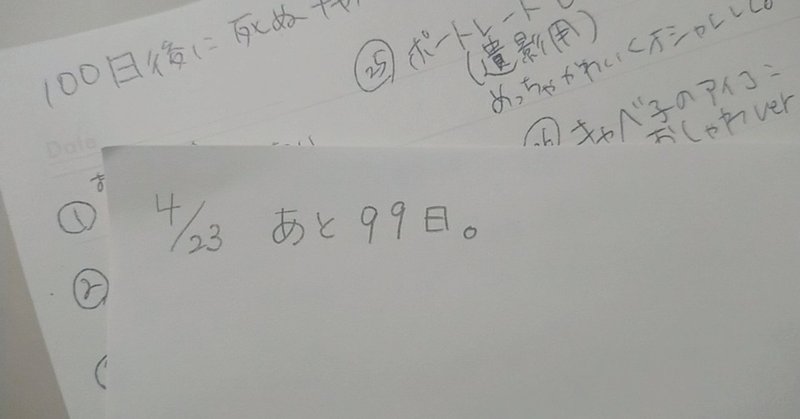 100日後に死ぬキャ
㉕ ポートレート
(遺影用)
めっちゃかわいくオシャレしてる
㉖ キャベ子のアイコン
おしゃれver
Date
①
②
4/23 あと99日。